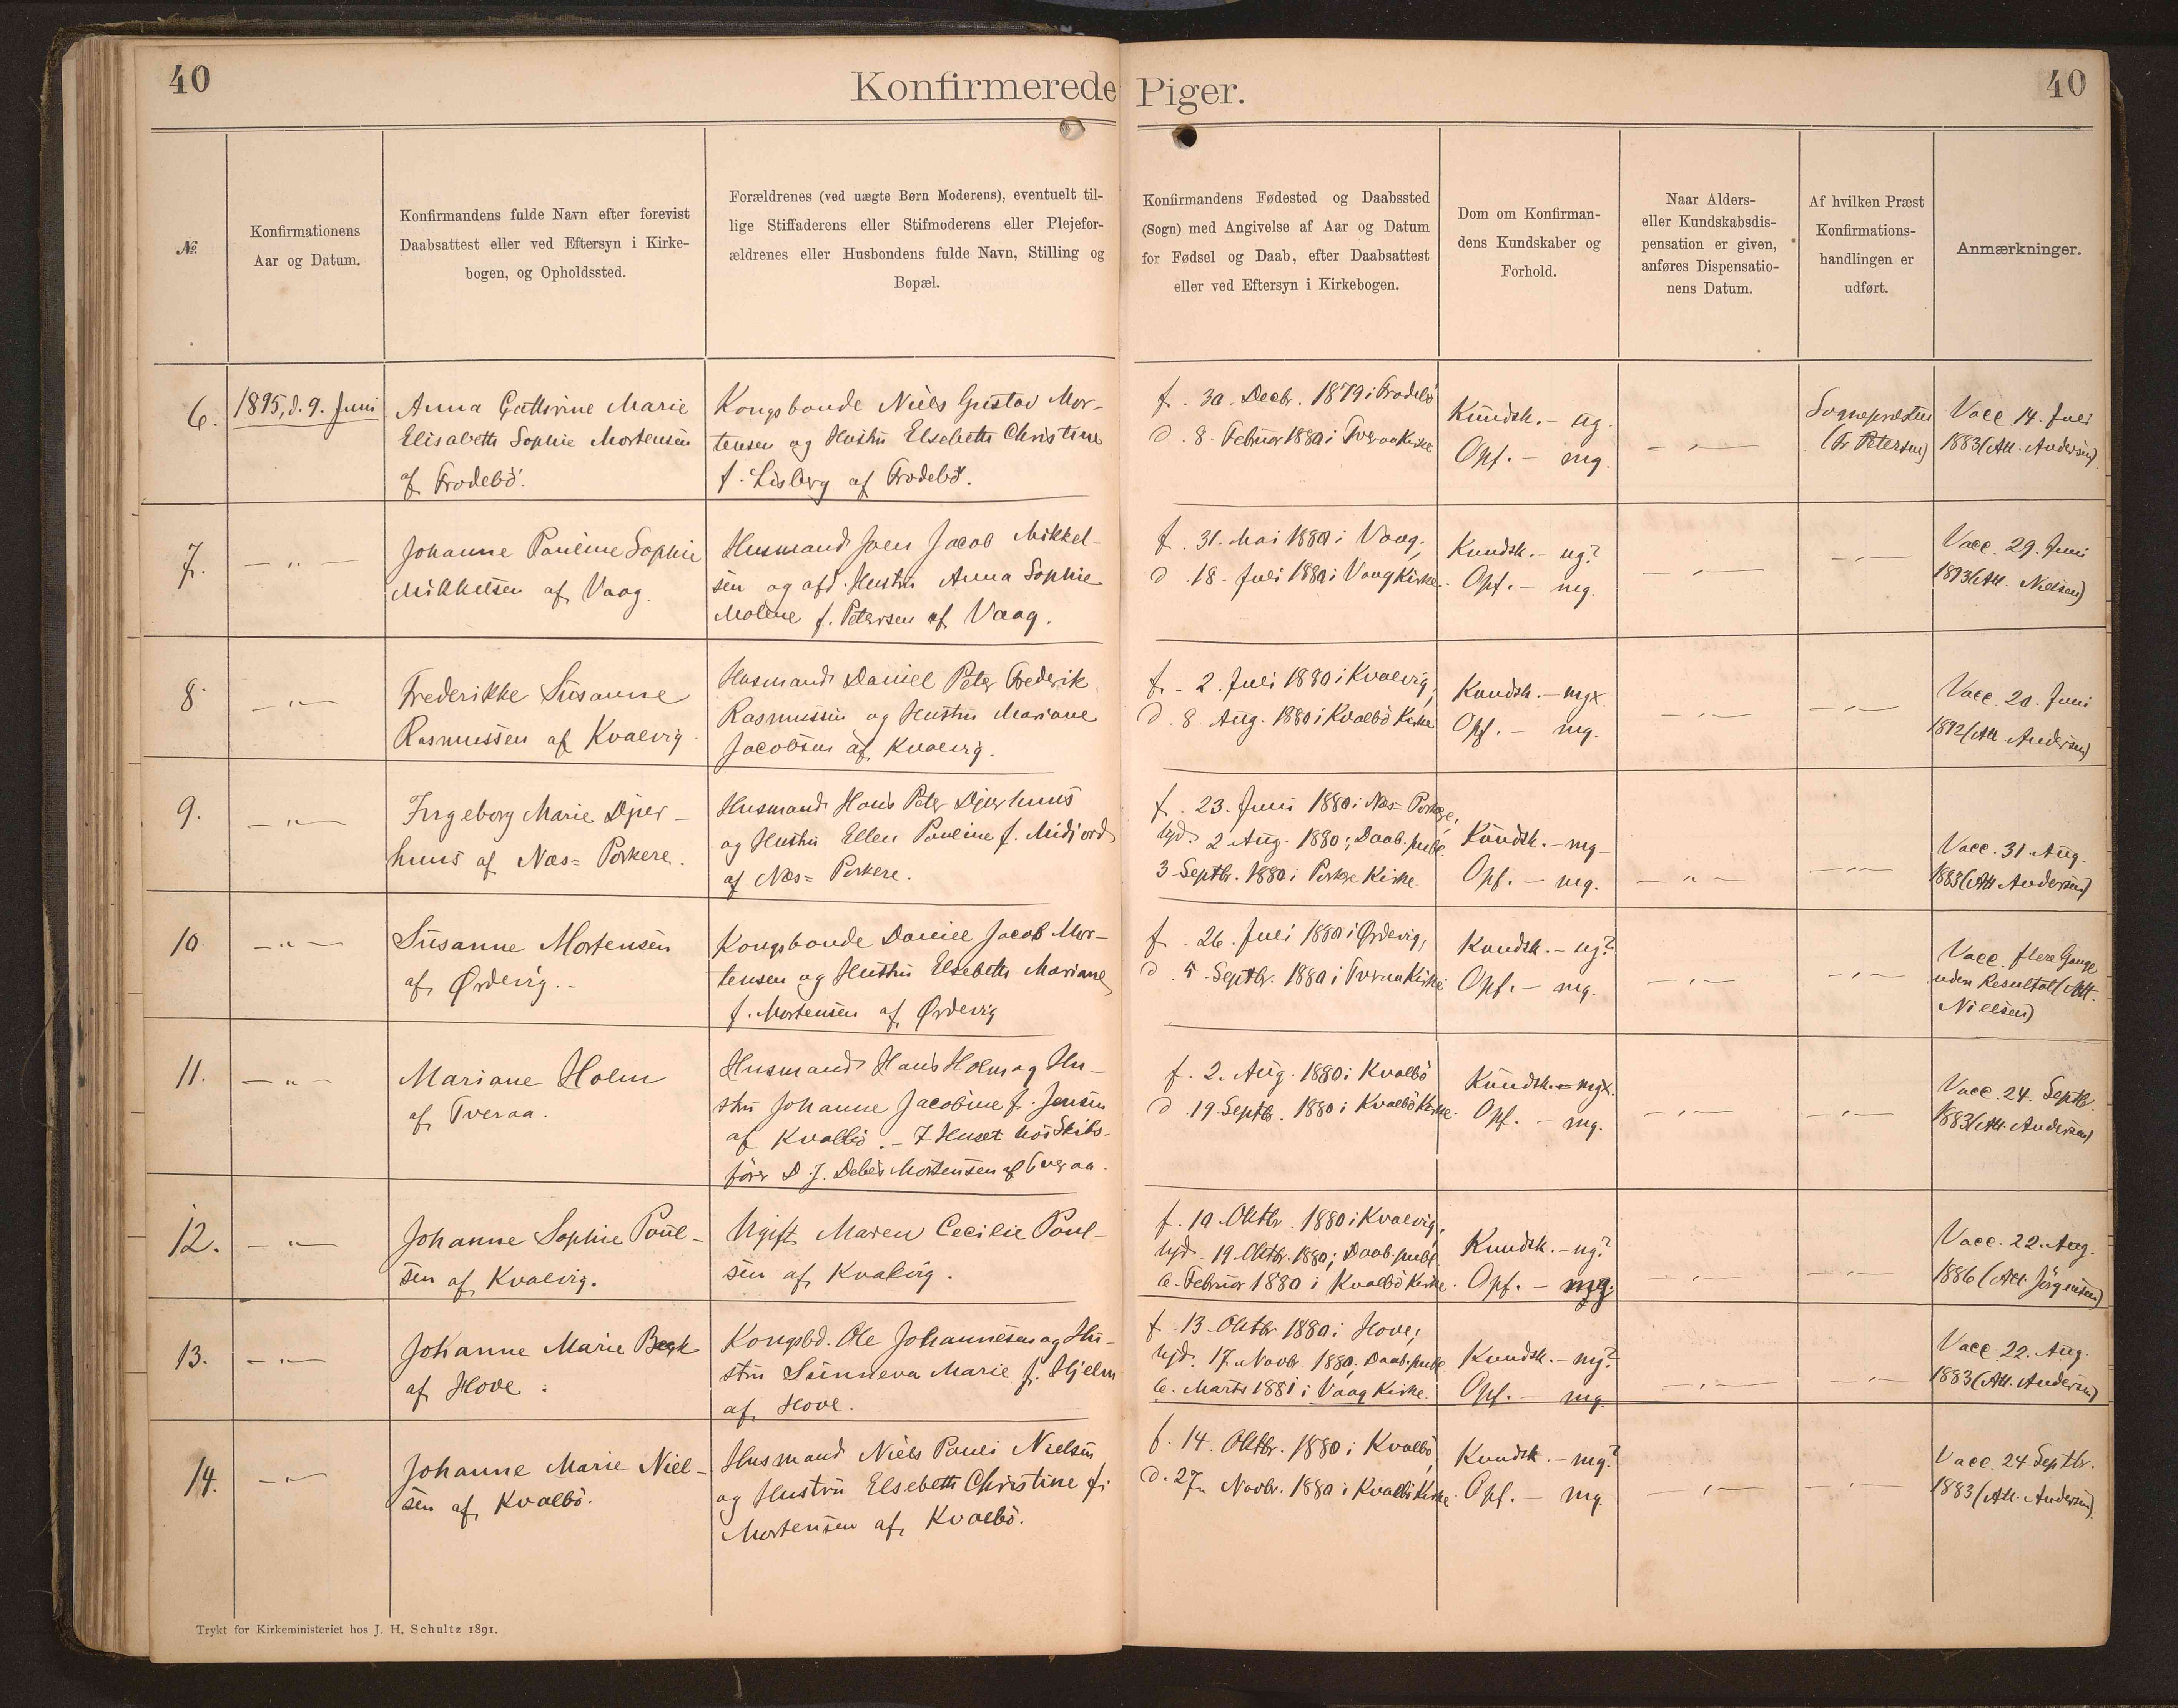 40
Konfirmerede Piger.
40
№.
Konfirmationens
Aar og Datum.
Konfirmandens fulde Navn efter forevist
Daabsattest eller ved Eftersyn i Kirke-
bogen, og Opholdssted.
Forældrenes (ved uægte Børn Moderens), eventuelt til-
lige Stiffaderens eller Stifmoderens eller Plejefor-
ældrenes eller Husbondens fulde Navn, Stilling og
Bopæl.
Konfirmandens Fødested og Daabssted
(Sogn) med Angivelse af Aar og Datum
for Fødsel og Daab, efter Daabsattest
eller ved Eftersyn i Kirkebogen.
Dom om Konfirman-
dens Kundskaber og
Forhold.
Naar Alders-
eller Kundskabsdis-
pensation er given,
anføres Dispensatio-
nens Datum.
Af hvilken Præst
Konfirmations-
handlingen er
udført.
Anmærkninger.
6.
1895, d. 9. Juni
Anna Cathrine Marie
Elisabeth Sophie Mortensen
af Frodebö.
Kongsbonde Niels Gustav Mor-
tensen og Hustru Elsebeth Christine
f. Lisberg af Frodebö.
f. 30. Decbr. 1879 i Frodebö
d. 8. Februar 1880 i Tveraa Kirke
Kundsk. - ug.
Opf. - mg.
- " -
Sognepræsten
(Fr Petersen)
Vacc. 14. Juli
1883 (Att. Andersen)
7.
- " -
Johanne Pauline Sophie
Mikkelsen af Vaag.
Husmand Joen Jacob Mikkel-
sen og afd. Hustru Anna Sophie
Malene f. Petersen af Vaag.
f. 31. Mai 1880 i Vaag;
d. 18. Juli 1880 i Vaag Kirke.
Kundsk. - ug?
Opf. - mg.
- " -
- " -
Vacc. 29. Juni
1893 (Att. Nielsen)
8.
- " -
Frederikke Susanne
Rasmussen af Kvalvig.
Husmand Daniel Peter Frederik
Rasmussen og Hustru Mariane
Jacobsen af Kvalvig.
f. 2. Juli 1880 i Kvalvig,
d. 8. Aug. 1880 i Kvalbö Kirke
Kundsk. - mgx.
Opf. - mg.
- " -
- " -
Vacc. 20. Juni
1892 (Att. Andersen)
9.
- " -
Ingeborg Marie Djur-
huus af Næs = Porkere.
Husmand Hans Peter Djurhuus
og Hustru Ellen Pauline f. Midjord
af Næs = Porkere.
f. 23. Juni 1880 i Næs = Porkere,
hjd. 2 Aug. 1880; Daab. publ.
3 Septbr. 1880 i Porkere Kirke
Kundsk. - mg -
Opf. - mg.
- " -
- " -
Vacc. 31. Aug.
1883 (Att. Andersen)
10.
- " -
Susanne Mortensen
af Ørdevig. -
Kongsbonde Daniel Jacob Mor-
tensen og Hustru Elsebeth Mariane
f. Mortensen af Ørdevig
f. 26. Juli 1880 i Ørdevig,
d. 5. Septbr. 1880 i Tveraa Kirke
Kundsk. - ug?
Opf. - mg.
- " -
- " -
Vacc. flere Gange
uden Resultat (Att.
Nielsen)
11.
- " -
Mariane Holm
af Tveraa.
Husmand Hans Holm og Hu-
stru Johanne Jacobine f. Jensen
af Kvalbö. - I Huset hos Skibs-
fører D. J. Debes Mortensen af Tveraa.
f. 2. Aug. 1880 i Kvalbö
d. 19. Septbr. 1880 i Kvalbö Kirke.
Kundsk. - mgx.
Opf. - mg.
- " -
- " -
Vacc. 24. Septbr.
1883 (Att. Andersen)
12.
- " -
Johanne Sophie Poul-
sen af Kvalvig.
Ugift Maren Cecilie Poul-
sen af Kvalvig.
f. 10. Oktbr. 1880 i Kvalvig,
hjd. 19. Oktbr. 1880; Daab. publ.
6. Februar 1880 i Kvalbö Kirke.
Kundsk. - ug?
Opf. - mg.
- " -
- " -
Vacc. 22. Aug.
1886 (Att. Jörgensen)
13.
- " -
Johanne Marie Beck
af Hove.
Kongsbd. Ole Johannesen og Hu-
stru Sunneva Marie f. Hjelm
af Hove.
f. 13. Oktbr. 1880 i Hove;
hjd. 17. Novbr. 1880; Daab. publ.
6. Marts 1881 i Vaag Kirke.
Kundsk. - mg?
Opf. - mg.
- " -
- " -
Vacc. 22. Aug.
1883 (Att. Andersen)
14.
- " -
Johanne Marie Niel-
sen af Kvalbö.
Husmand Niels Pauli Nielsen
og Hustru Elsebeth Christine f.
Mortensen af Kvalbö.
f. 14. Oktbr. 1880 i Kvalbö,
d. 27. Novbr. 1880 i Kvalbö Kirke.
Kundsk. - mg?
Opf. - mg.
- " -
- " -
Vacc. 24. Septbr.
1883 (Att. Andersen)
Trykt for Kirkeministeriet hos J. H. Schultz 1891.